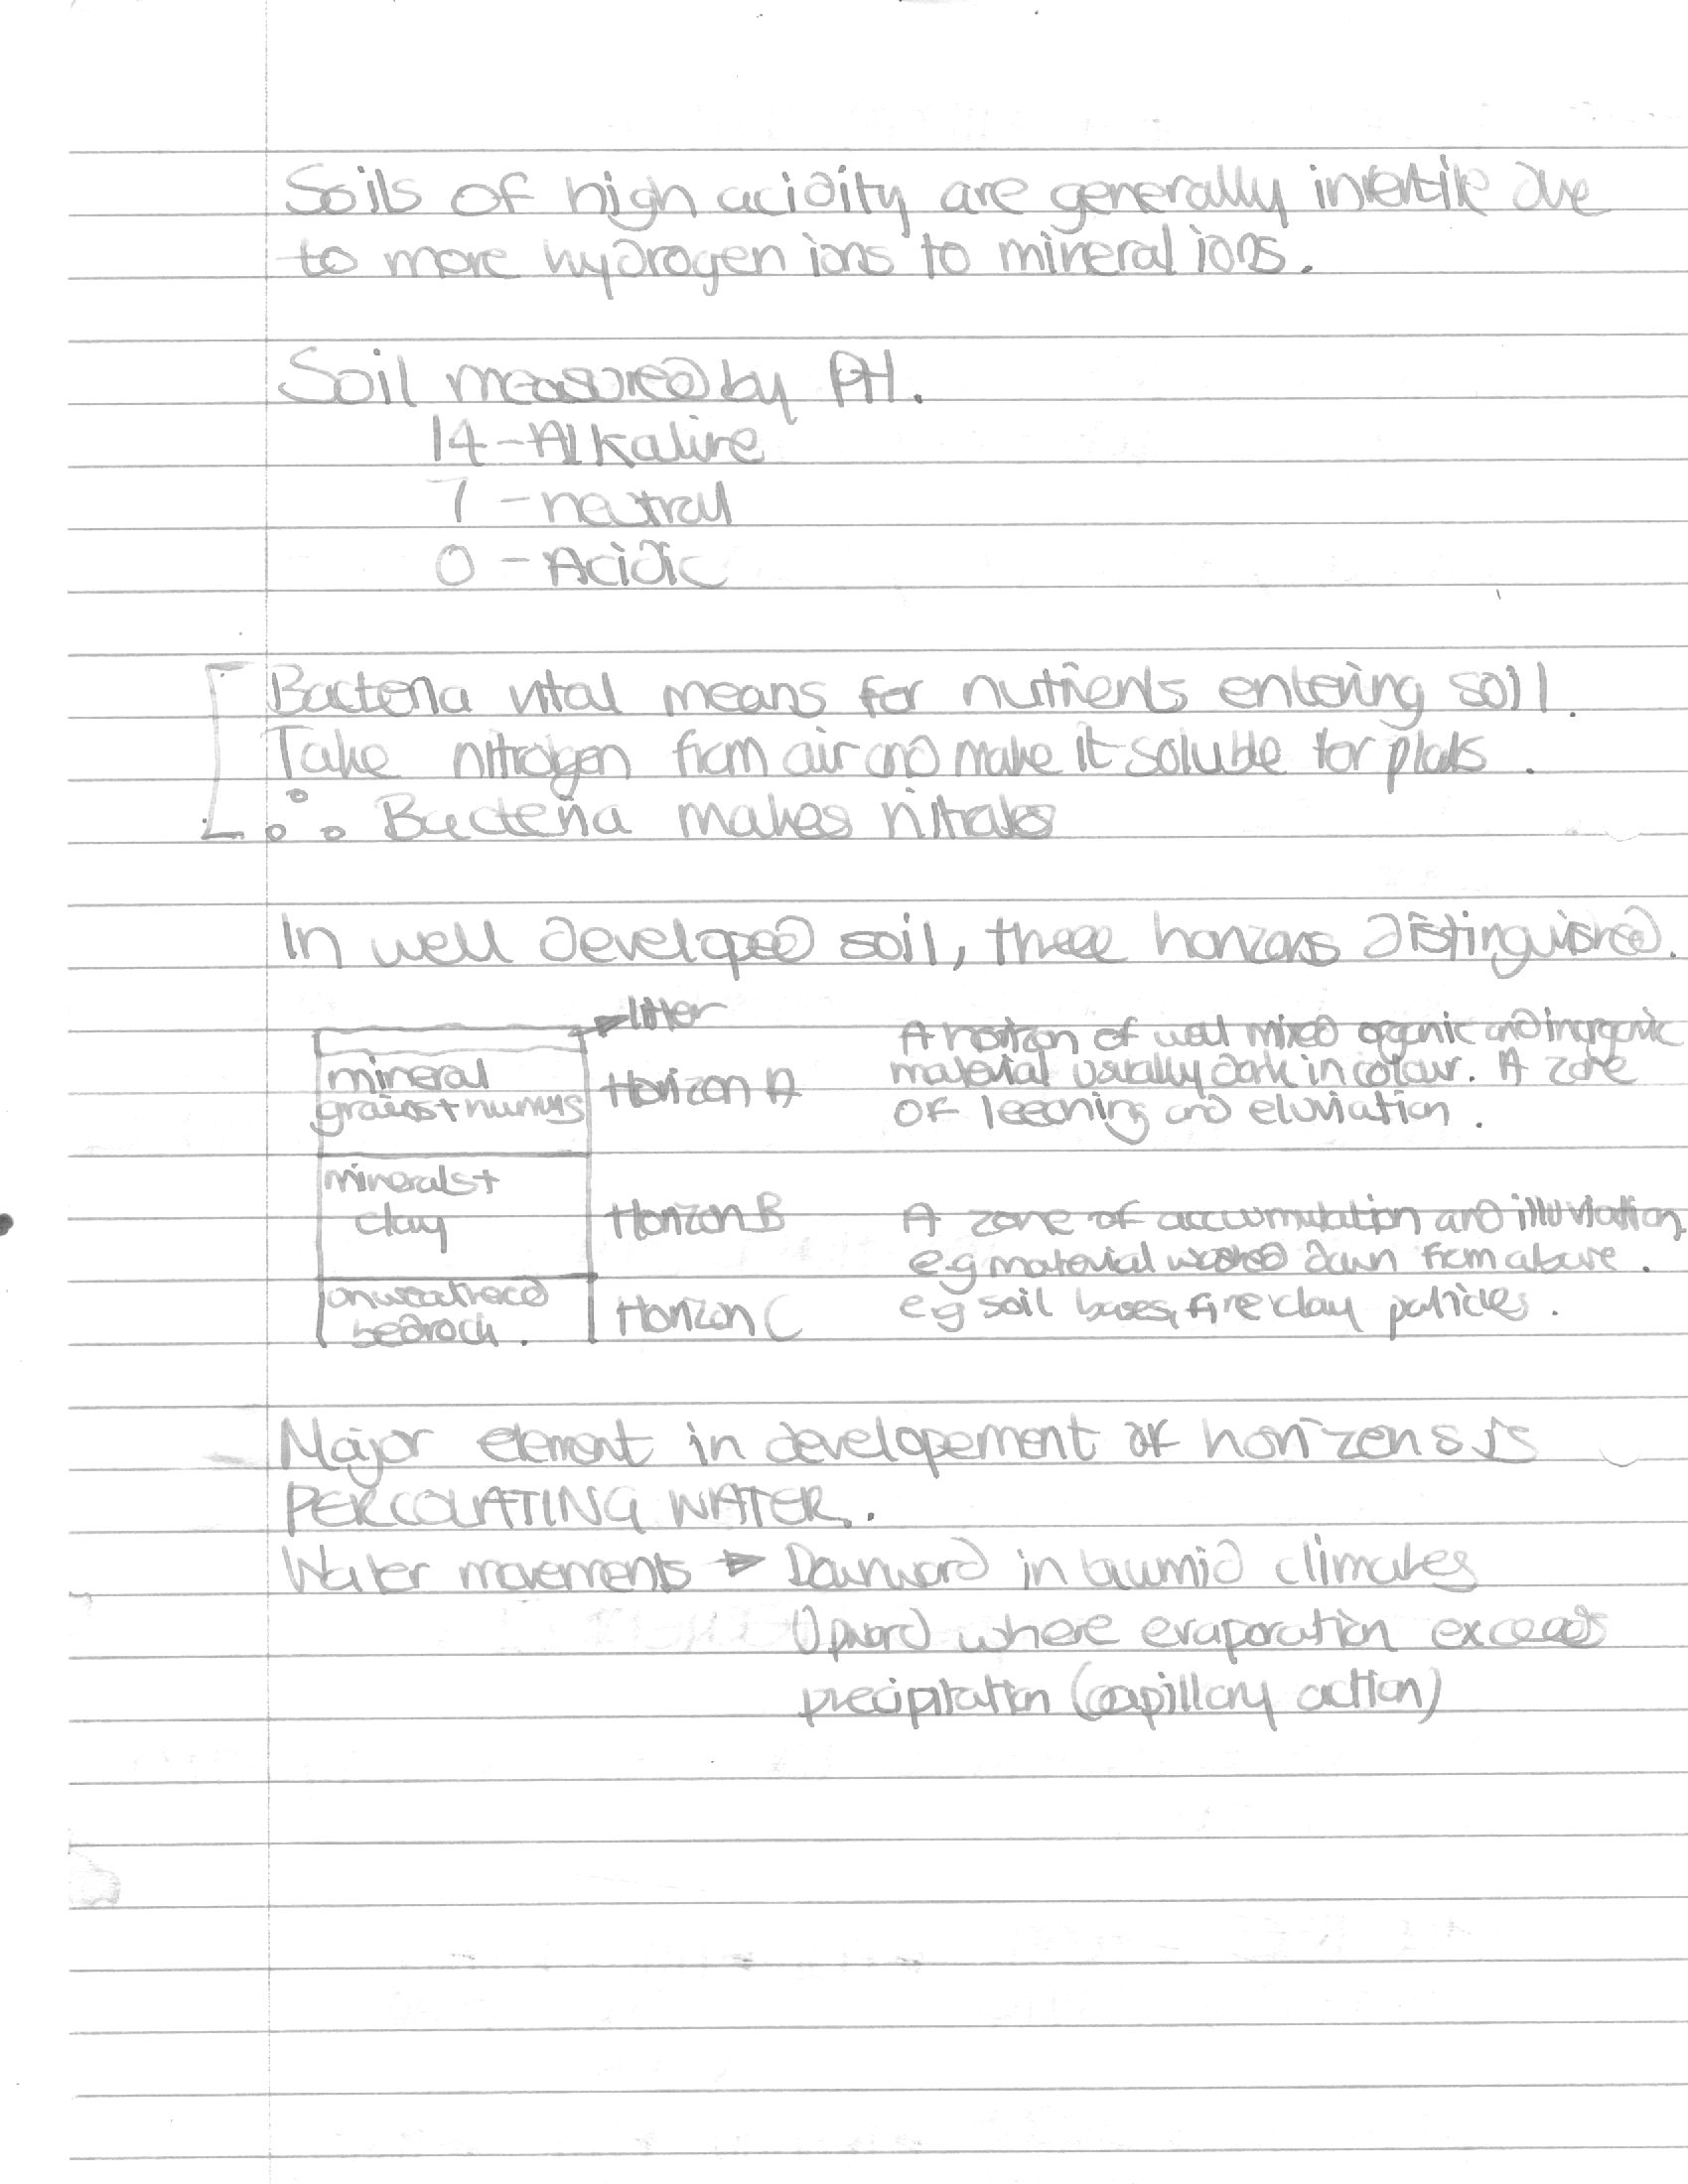 Soils of high acidity are generally infertile due
to more hydrogen ions to mineral ions.
Soil measured by PH.
14 - Alkaline
7 - neutral
0 - Acidic
Bacteria vital means for nutrients entering soil.
Take nitrogen from air and make it soluble for plats.
∴ Bacteria makes nitrates
In well developed soil, three horizons distinguished.
litter
mineral
grains + humus
Horizon A
A horizon of well mixed organic and inorganic
material usually dark in colour. A zone
of leeching and eluviation.
minerals +
clay
Horizon B
A zone of accumulation and illuviation
e.g material washed down from above.
e.g soil bases, fine clay paticles.
unweathered
bedrock.
Horizon C
Major element in developement of horizens is
PERCOLATING WATER.
Water movements → Downward in humid climates
Upward where evaporation exceeds
precipitation (capillary action)